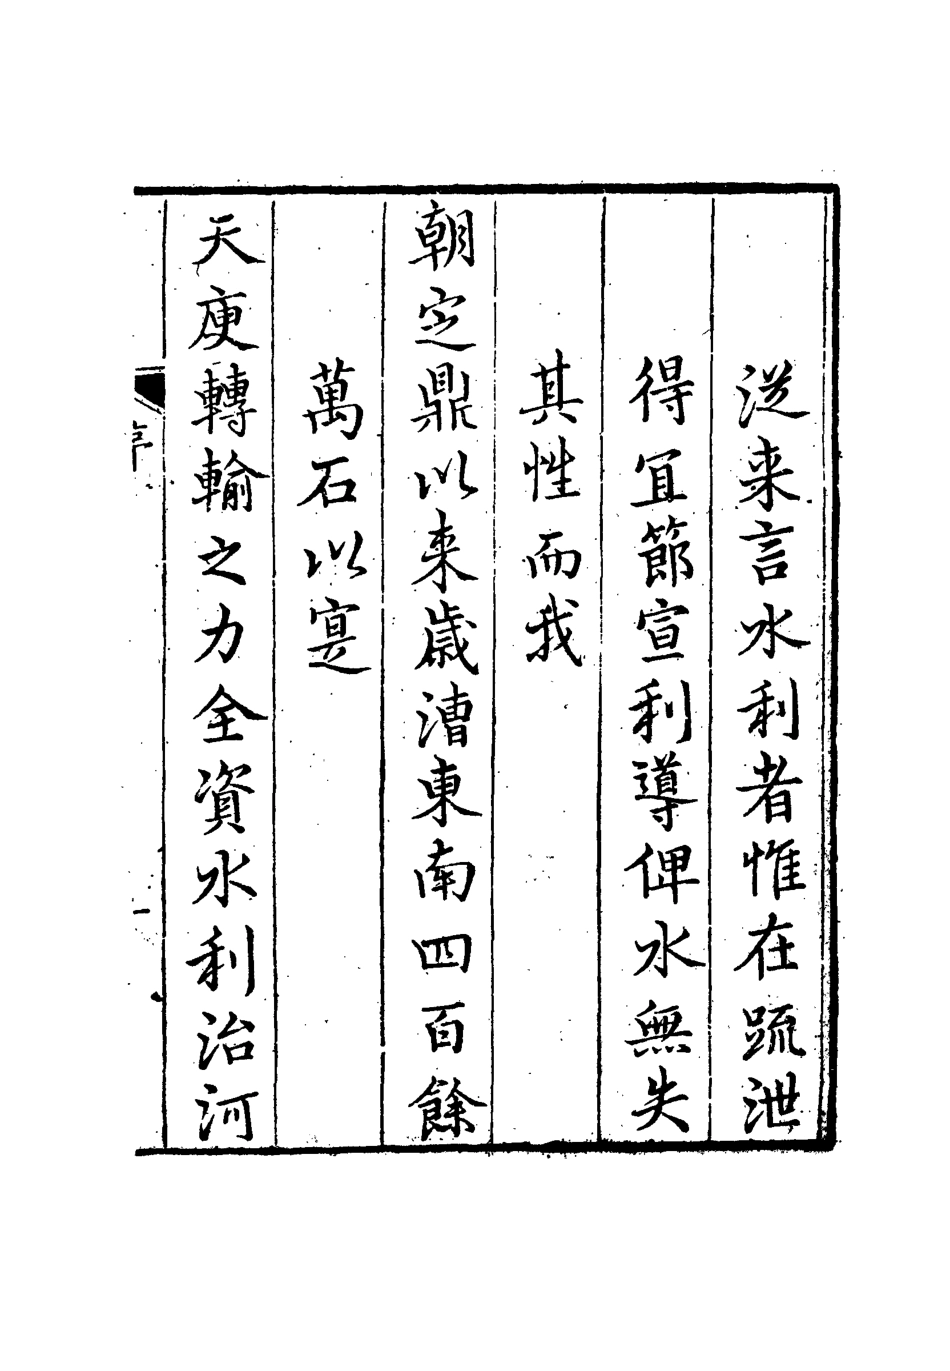 從来言水利者惟在䟽泄
得冝節宣利導俾水無失
其性而我
朝定鼎以来歲漕東南四百餘
萬石以寔
天庾轉輸之力全資水利治河
序
一